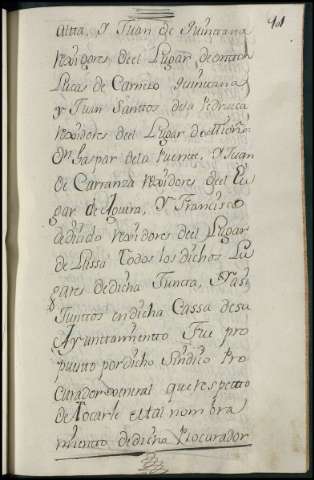 101
altta, Y Juan de Quintana
Rexidores del Lugar de
Lucas de Carnelo Quintana,
y Juan Santtos dela Pedraca
Rexidores del Lugar de
Dn. Gaspar dela Puente, Y Juan
de Carranza Rexidores del Lu
gar de Aguira, Y Francisco
dedudo Rexidores del Lugar
de Lassa Todos los dichos Lu
gares de dicha Juncta, Y asi
Junttos en dicha Cassa desu
Ayuntamiento Fue pro
puesto por dicho Sindico Pro
curador General que respecto
de Tocarle estta nombra
miento de dicha Procurador